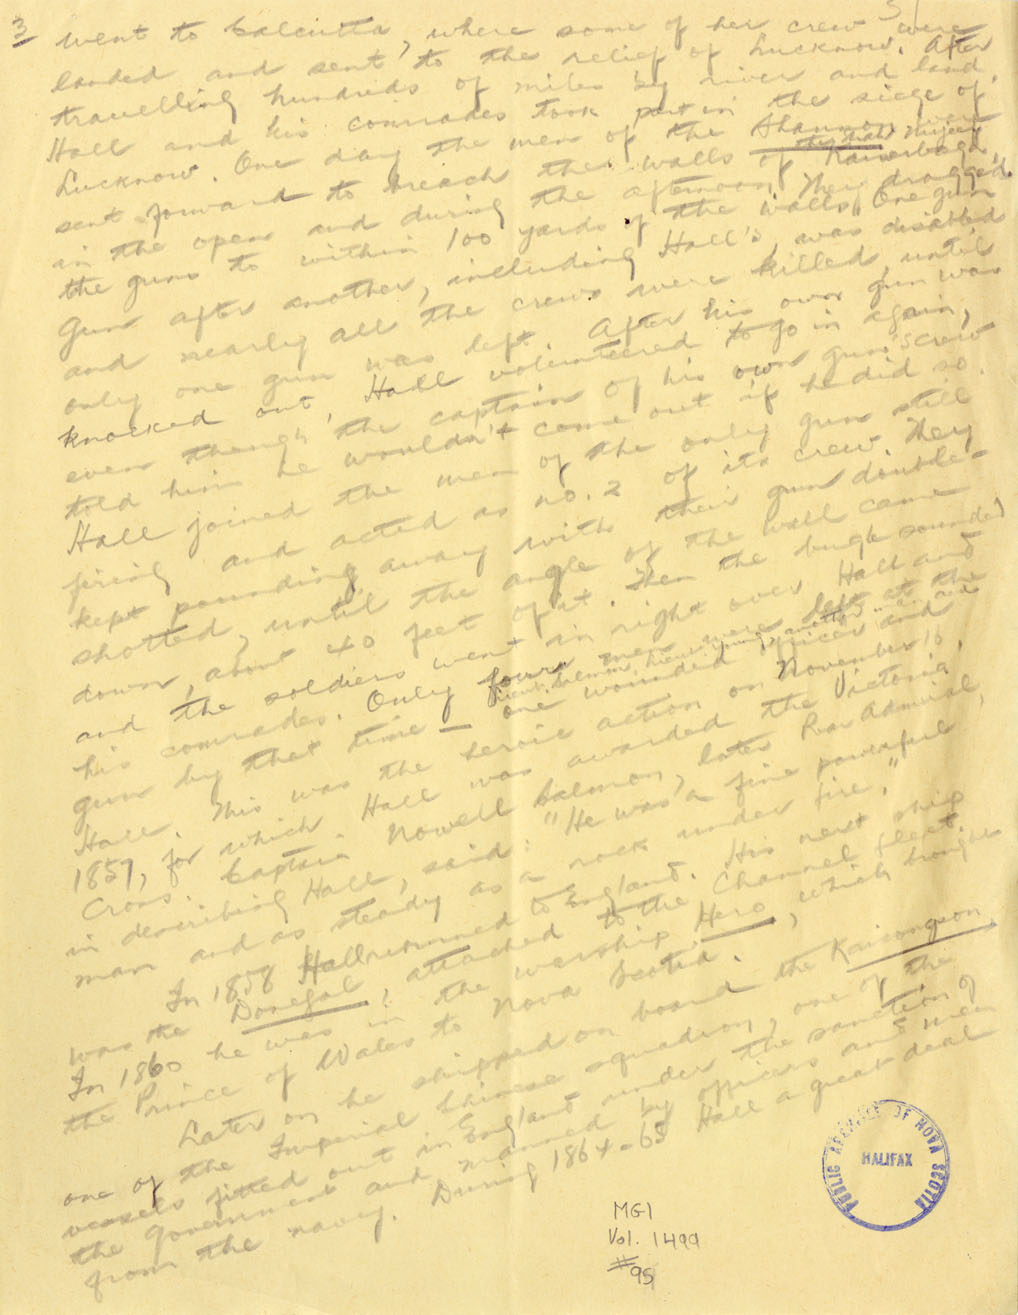 3
went to Calcutta, where some of her crew were
landed and sent to the relief of Lucknow. After
travelling hundreds of miles by river and land,
Hall and his comrades took part in the siege of
Lucknow. One day the men of the Shannon were
sent forward to breach the walls of
in the open and during the afternoon. They dragged
the guns to within 100 yards of the walls. One gun
Gun after another, including Hall's, was disabled
and nearly all the crews were killed, until
only one gun was left. After his own gun was
knocked out, Hall volunteered to go in again,
even though the captain of his own gun's crew
told him he wouldn't come out if he did so.
Hall joined the men of the only gun still
firing and acted as no. 2 of its crew. They
kept pounding away with their gun double-
shotted, until the angle of the wall came
down, about 40 feet of it. Then the bugle sounded
and the soldiers went in right over Hall and
his comrades. Only four men were left at the
gun by that time — one wounded officer and
Hall. This was the heroic action on November 16,
1857, for which Hall was awarded the Victoria
Cross. Captain Nowell Salmon, later Rear Admiral,
in describing Hall, said: "He was a fine powerful
man and as steady as a rock under fire."
In 1858 Hall returned to England. His next ship
was the Donegal, attached to the Channel fleet.
In 1860 he was in the warship Hero, which brought
the Prince of Wales to Nova Scotia.
Later on he shipped on board the Kwangpson,
one of the Imperial Chinese squadron, one of the
vessels fitted out in England under the sanction of
the Government and manned by officers and men
from the navy. During 1864-65 Hall a great deal
PUBLIC ARCHIVES OF NOVA SCOTIA
HALIFAX
MG1
Vol. 1499
#95